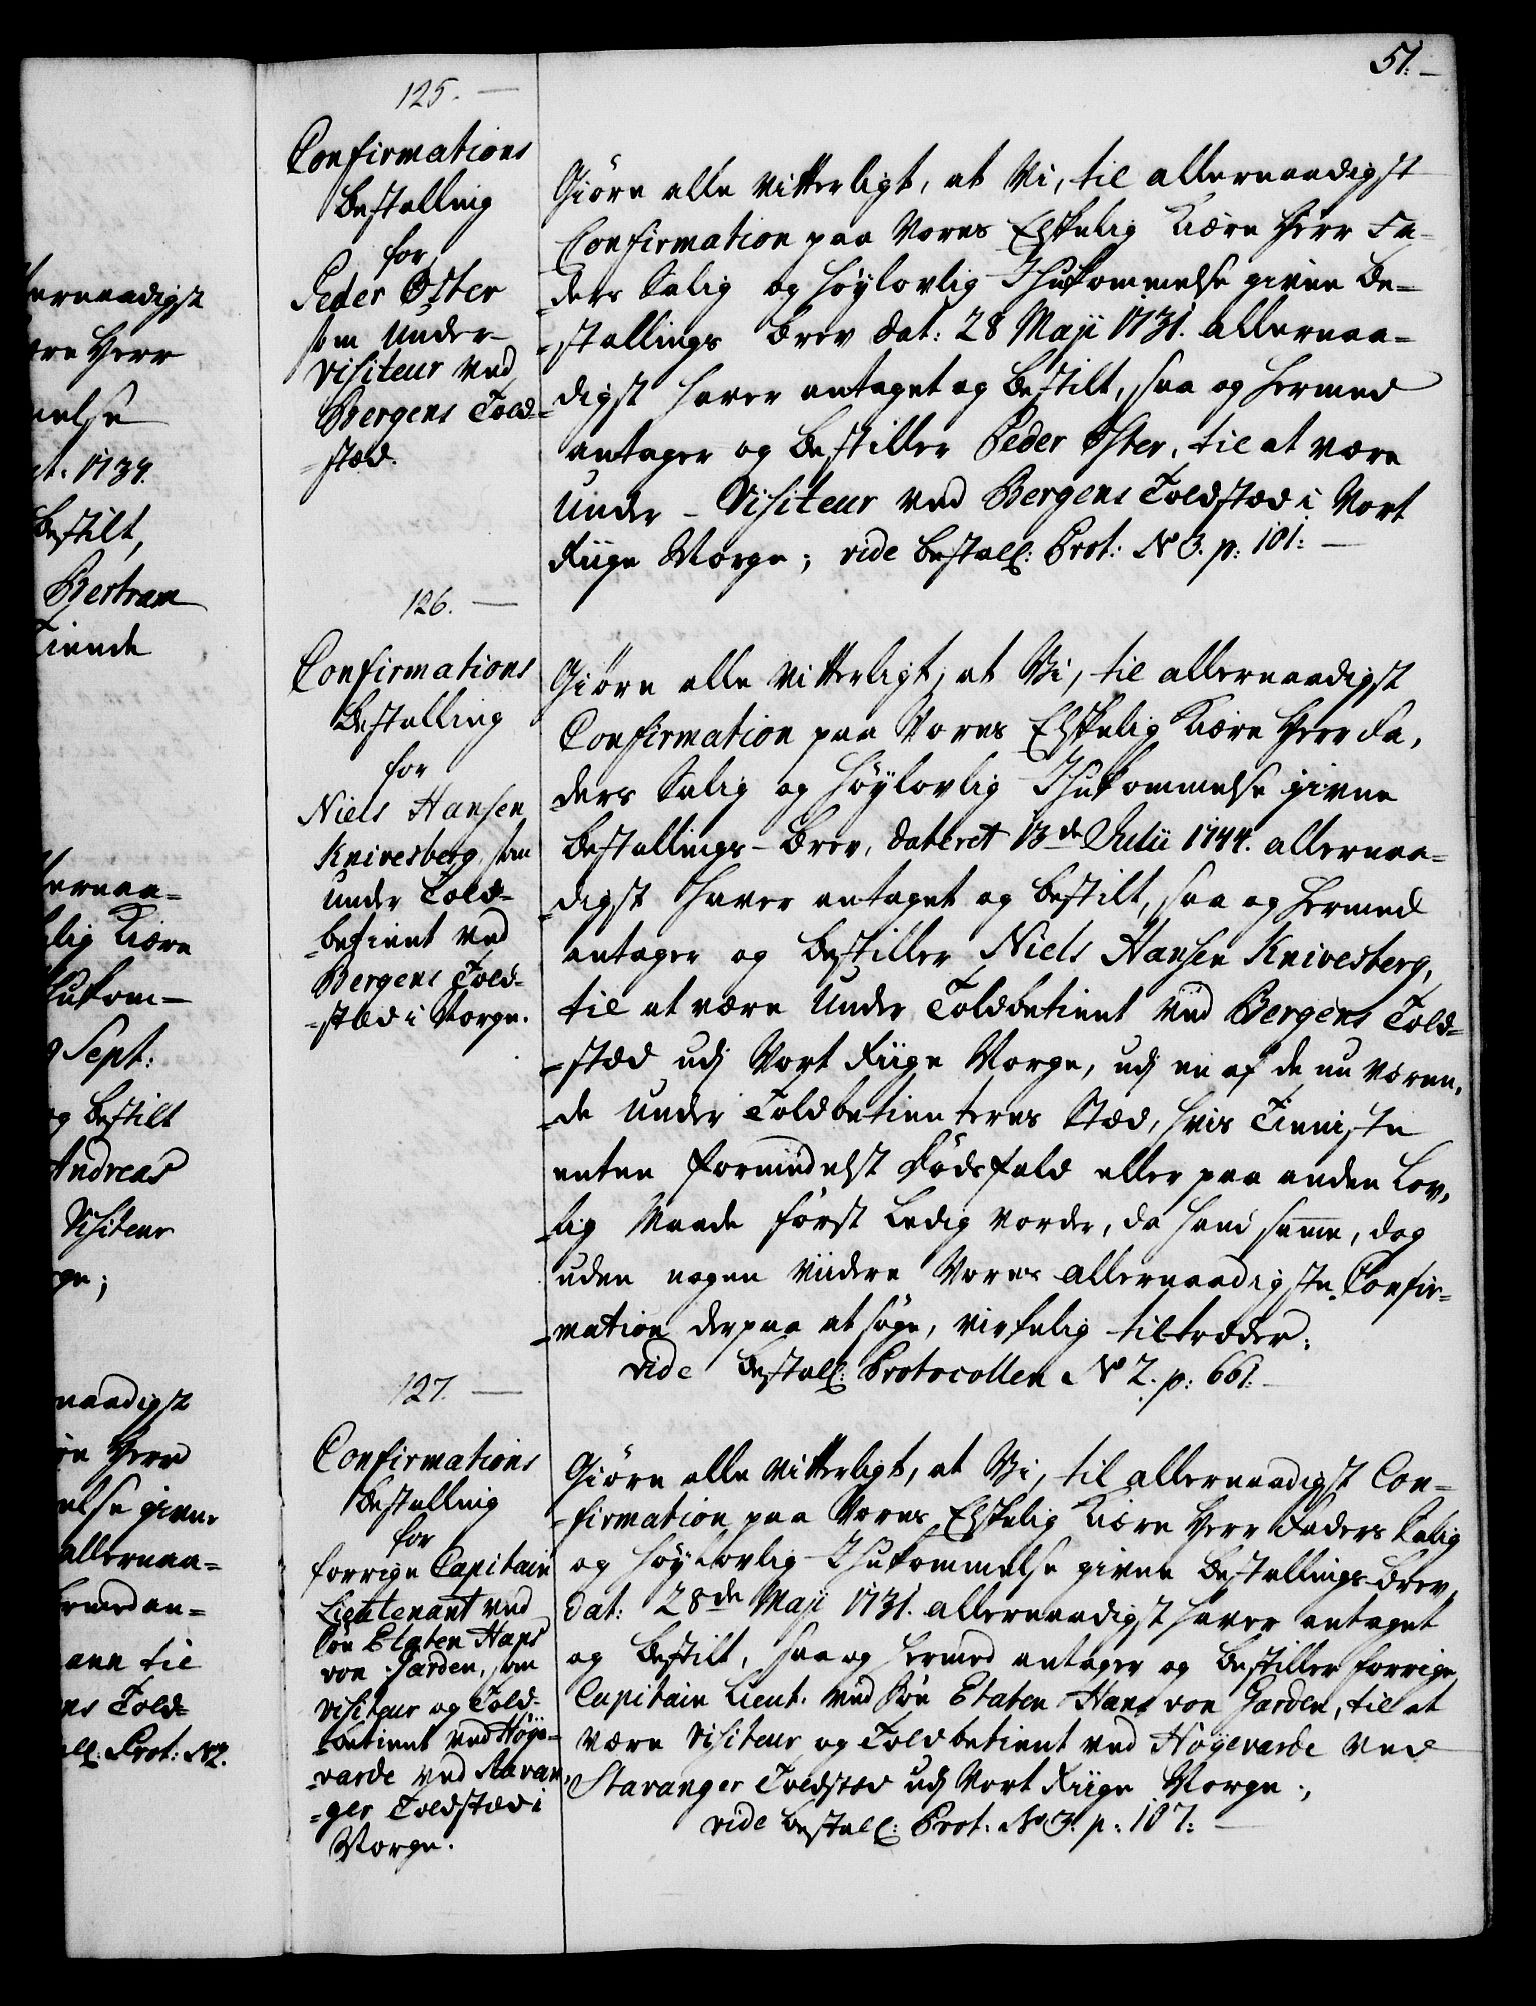 51.
125.
Confirmations
Bestalling
for
Peder Öster
som Under-
visiteur ved
Bergens Told-
-stæd.
Giöre alle vitterligt, at Vi, til allernaadigst
Confirmation paa Vores Elskelig Kiære Herr Fa-
-ders Salig og Höylovlig Ihukommelse givne Be-
-stallings Brev dat: 28 Maji 1731. allernaa-
-digst haver antaget og bestilt, saa og hermed
antager og bestiller Peder Öster, til at være
Under-Visiteur ved Bergens Toldstæd i Vort
Riige Norge; vide Bestall: Prot: No 3. p: 101:
126.
Confirmations
Bestalling
for
Niels Hansen
Knivesberg som
under Told-
-betient ved
Bergens Told-
-stæd i Norge.
Giöre alle vitterligt, at Vi, til allernaadigst
Confirmation paa Vores Elskelig Kiære Herr Fa,
-ders Salig og Höylovlig Ihukommelse givne
Bestallings-Brev, dateret 13de Julii 1744. allernaa-
-digst haver antaget og bestilt, saa og hermed
antager og bestiller Niels Hansen Knivesberg,
til at være Under Toldbetient ved Bergens Told-
-stæd udj Vort Riige Norge, udj en af de nu væren,
-de Under Toldbetienteres Stæd, hvis Tieniste
enten formedelst Dödsfald eller paa anden Lov,
-lig Maade först Ledig vorder, da hand samme, dog
uden nogen viidere Vores allernaadigste Confir-
-mation derpaa at söge, virkelig tiltræder;
vide Bestall: Protocollen No 2. p: 661:
127.
Confirmations
Bestalling
for
forrige Capitain
Lieutenant ved
Söe Etaten Hans
von Garden, som
Visiteur og Told-
-betient ved Höye-
-varde ved Stavan,
-ger Toldstæd i
Norge.
Giöre alle vitterligt, at Vi, til allernaadigst Con-
-firmation paa Vores Elskelig Kiære Herr Faders Salig
og Höylovlig Ihukommelse givne Bestallings-Brev,
dat: 28de Maji 1731. allernaadigst haver antaget
og bestilt, saa og hermed antager og bestiller forrige
Capitain Lieut. ved Söe Etaten Hans von Garden, til at
være Visiteur og Toldbetient ved Höyevarde ved
Stavanger Toldstæd udj Vort Riige Norge;
vide Bestall: Prot. No 3. p: 107: